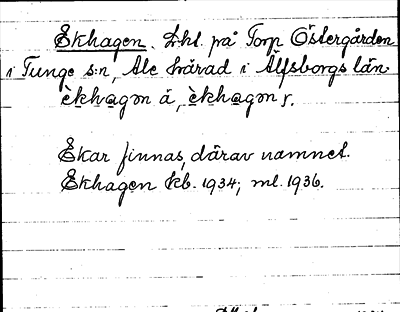 Ekhagen. Lht. på Torp Östergården
i Tunge s:n, Ale härad i Älfsborgs län.
èkhagən á, èkhagən ſ.
Ekar finnas, därav namnet.
Ekhagen kb. 1934; ml. 1936.